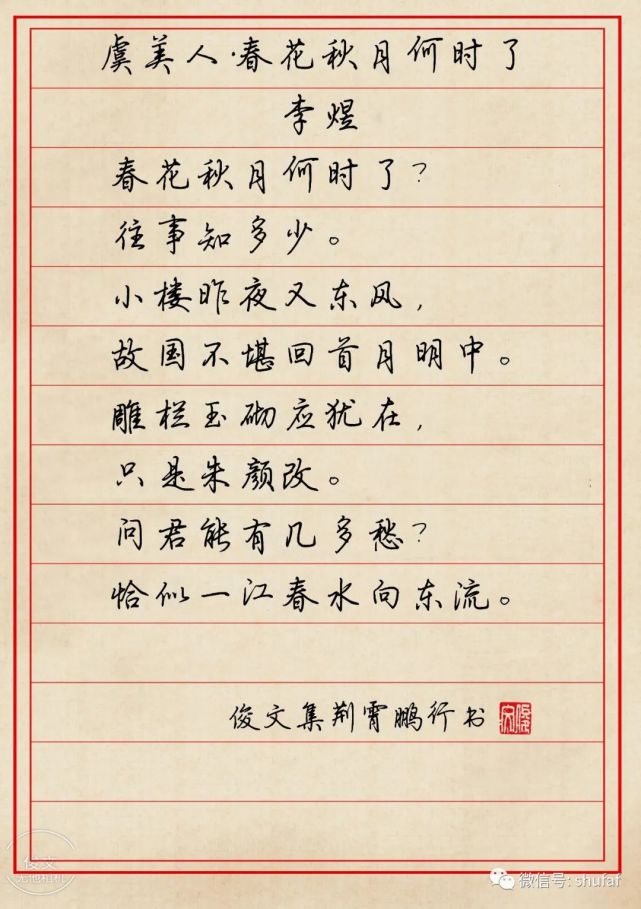 虞美人·春花秋月何时了
李煜
春花秋月何时了?
往事知多少。
小楼昨夜又东风,
故国不堪回首月明中。
雕栏玉砌应犹在,
只是朱颜改。
问君能有几多愁?
恰似一江春水向东流。
俊文集荆霄鹏行书
俊文
微信号: shufaf